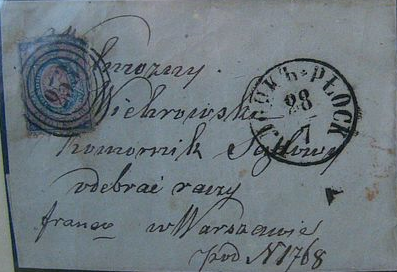 Wielmożny
Wichrowski
Komornik Sądowy
odebrać raczy
franco w Warszawie
pod N 1768
ПЛОЦКЪ PŁOCK
28
1